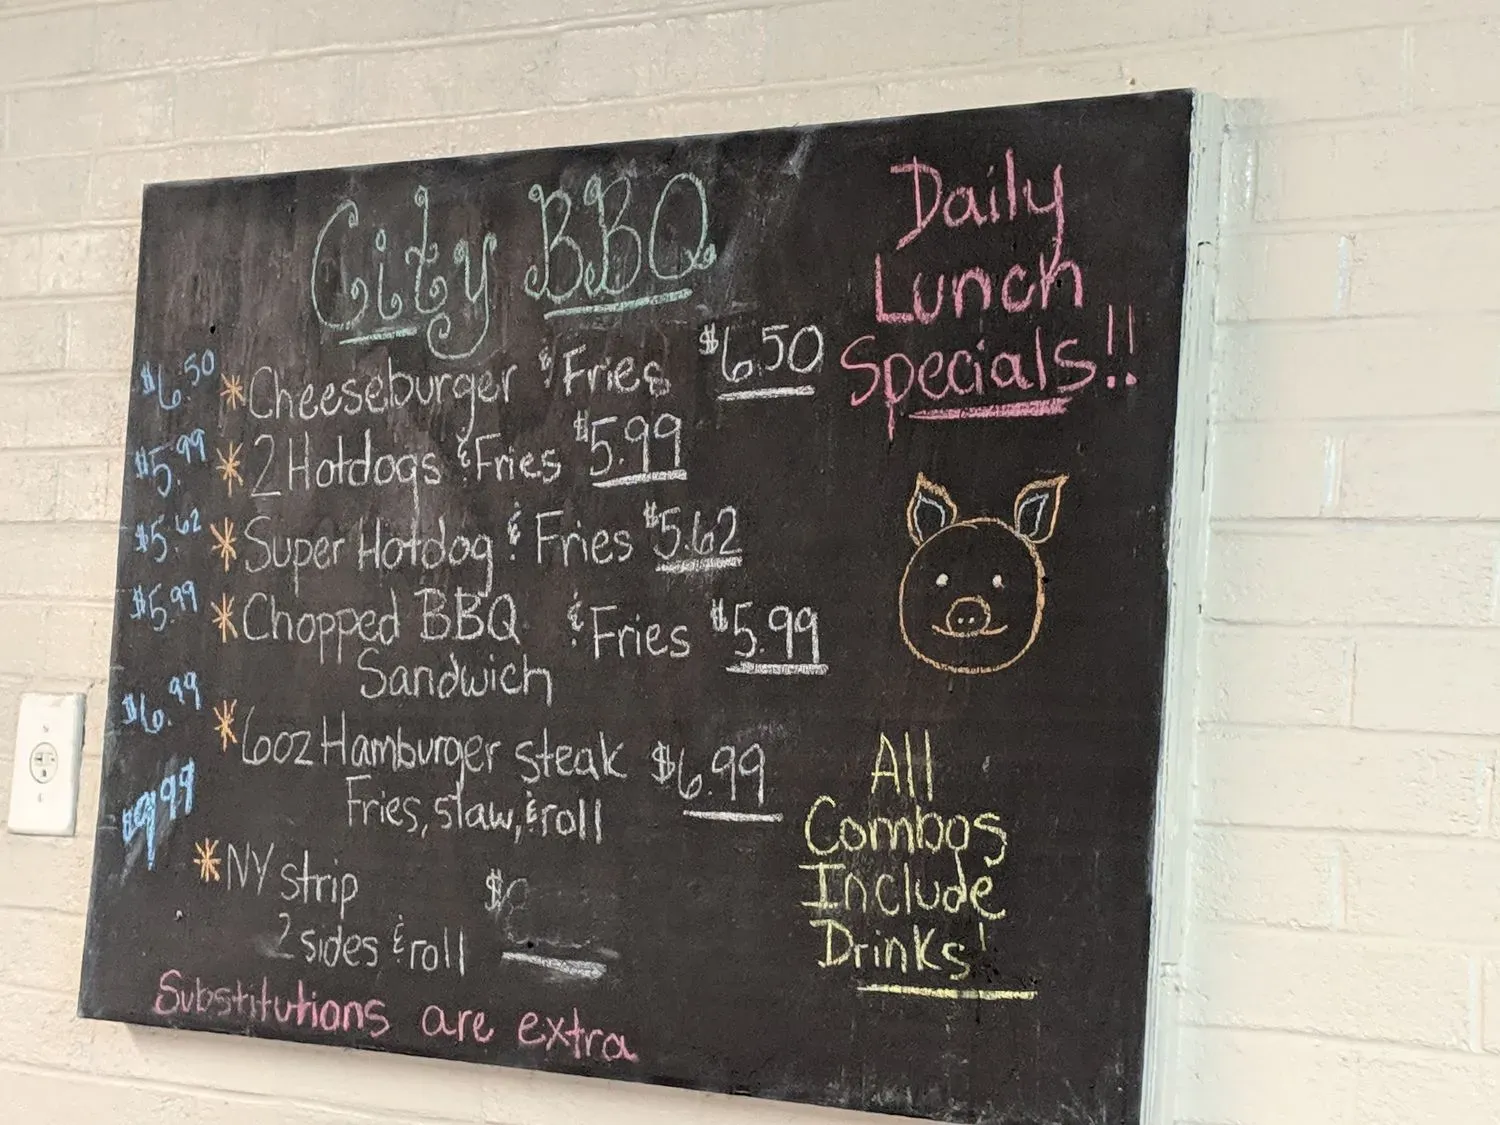 City BBQ
Daily
Lunch
Specials!!
$6.50 * Cheeseburger & Fries $6.50
$5.99 * 2 Hotdogs & Fries $5.99
$5.62 * Super Hotdog & Fries $5.62
$5.99 * Chopped BBQ & Fries $5.99
Sandwich
$6.99 * 6oz Hamburger steak $6.99
Fries, slaw, & roll
$9.99 * NY strip $
2 sides & roll
Substitutions are extra
All
Combos
Include
Drinks!